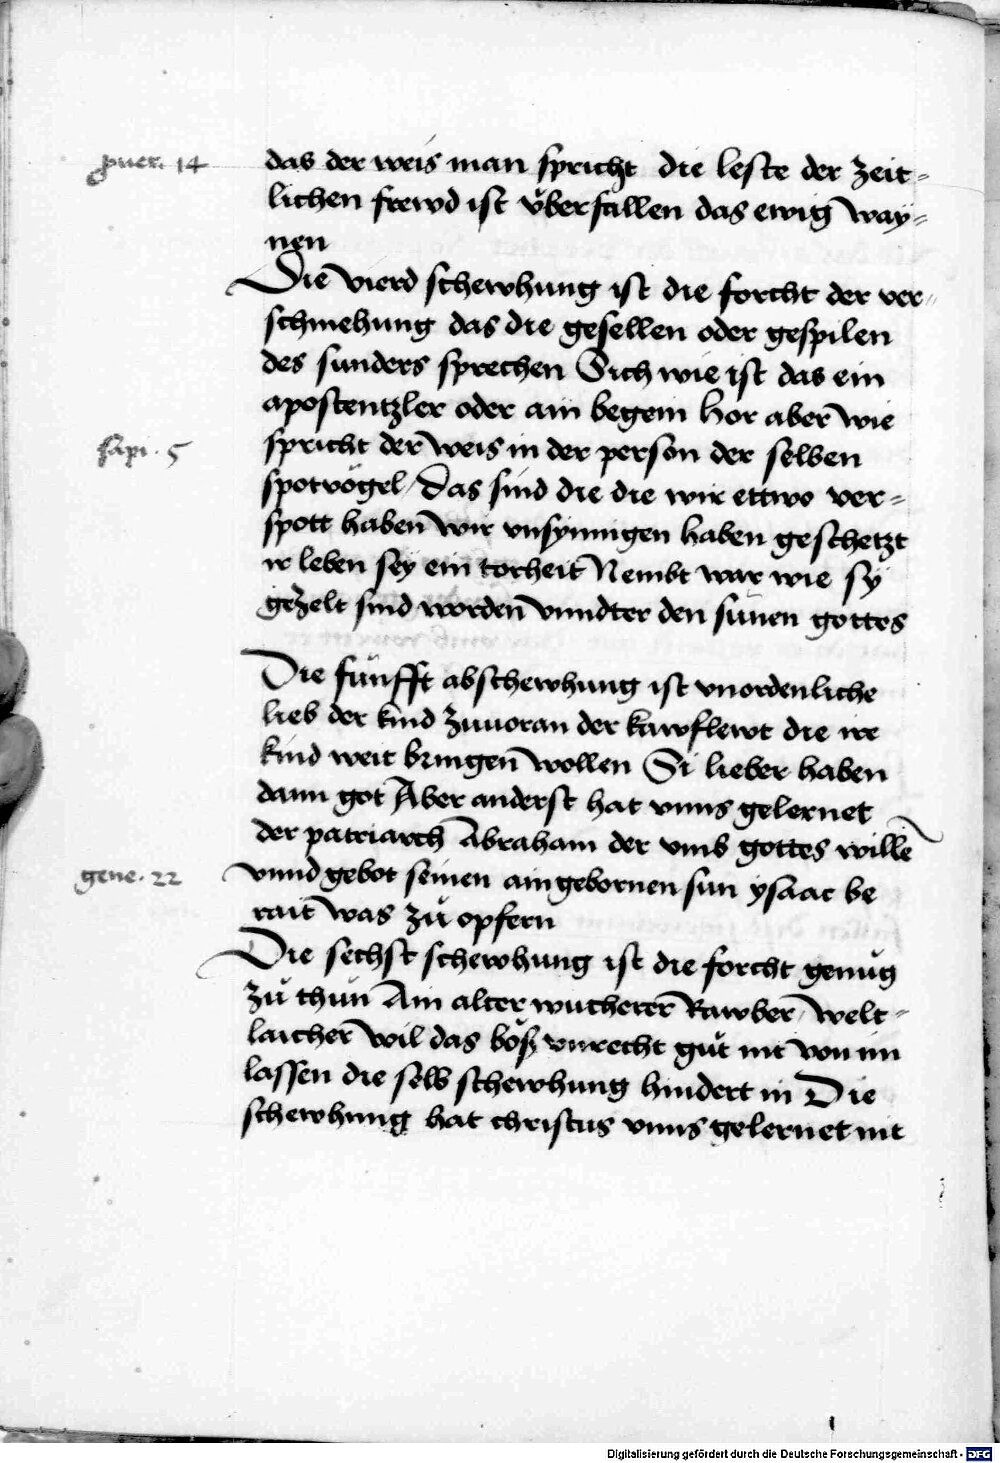 prouer. 14
das der weis man spricht die leste der zeit=
lichen frewd ist vͤberfallen das ewig way=
nen
Die vierd schewhung ist die forcht der ver=
schmehung das die gesellen oder gespilen
des sunders sprechen Sich wie ist das ein
apostentzler oder ain begein Hor aber wie
sapi. 5
spricht der weis in der person der selben
spotvögel / Das sind die die wir ettwo ver=
spott haben wir vnsynnigen haben geschetzt
ir leben sey ein torheit Nembt war wie sy
gezelt sind worden vnndter den sünen gottes
Die fünfft abschewhung ist vnordenliche
lieb der kind zuuoran der kawflewt die ire
kind weit bringen wollen Si lieber haben
dann got Aber anderst hat vnns gelernet
der patriarch Abraham der vmb gottes willē
gene. 22
vnnd gebot seinen aingebornen sun ysaac be
rait was zů opfern
Die sechst schewhung ist die forcht genůg
zů thun Ain alter wucherer Rawber, welt=
laicher wil das böß vnrecht gůt nit von im
lassen die selb schewhung hindert in Die
schewhung hat christus vnns gelernet nit
Digitalisierung gefördert durch die Deutsche Forschungsgemeinschaft - DFG